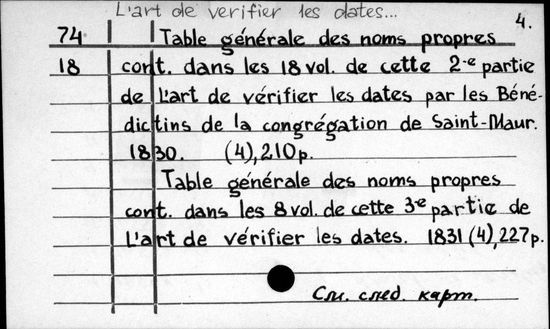 L'art de verifier les dates...
4.
74 Table générale des noms propres
18 cont. dans les 18 vol. de cette 2-e partie
de L'art de vérifier les dates par les Béné-
dictins de la congrégation de Saint-Maur.
1830. (4), 210 p.
Table générale des noms propres
cont. dans les 8 vol. de cette 3e partie de
L'art de vérifier les dates. 1831 (4), 227 p.
См. след. карт.